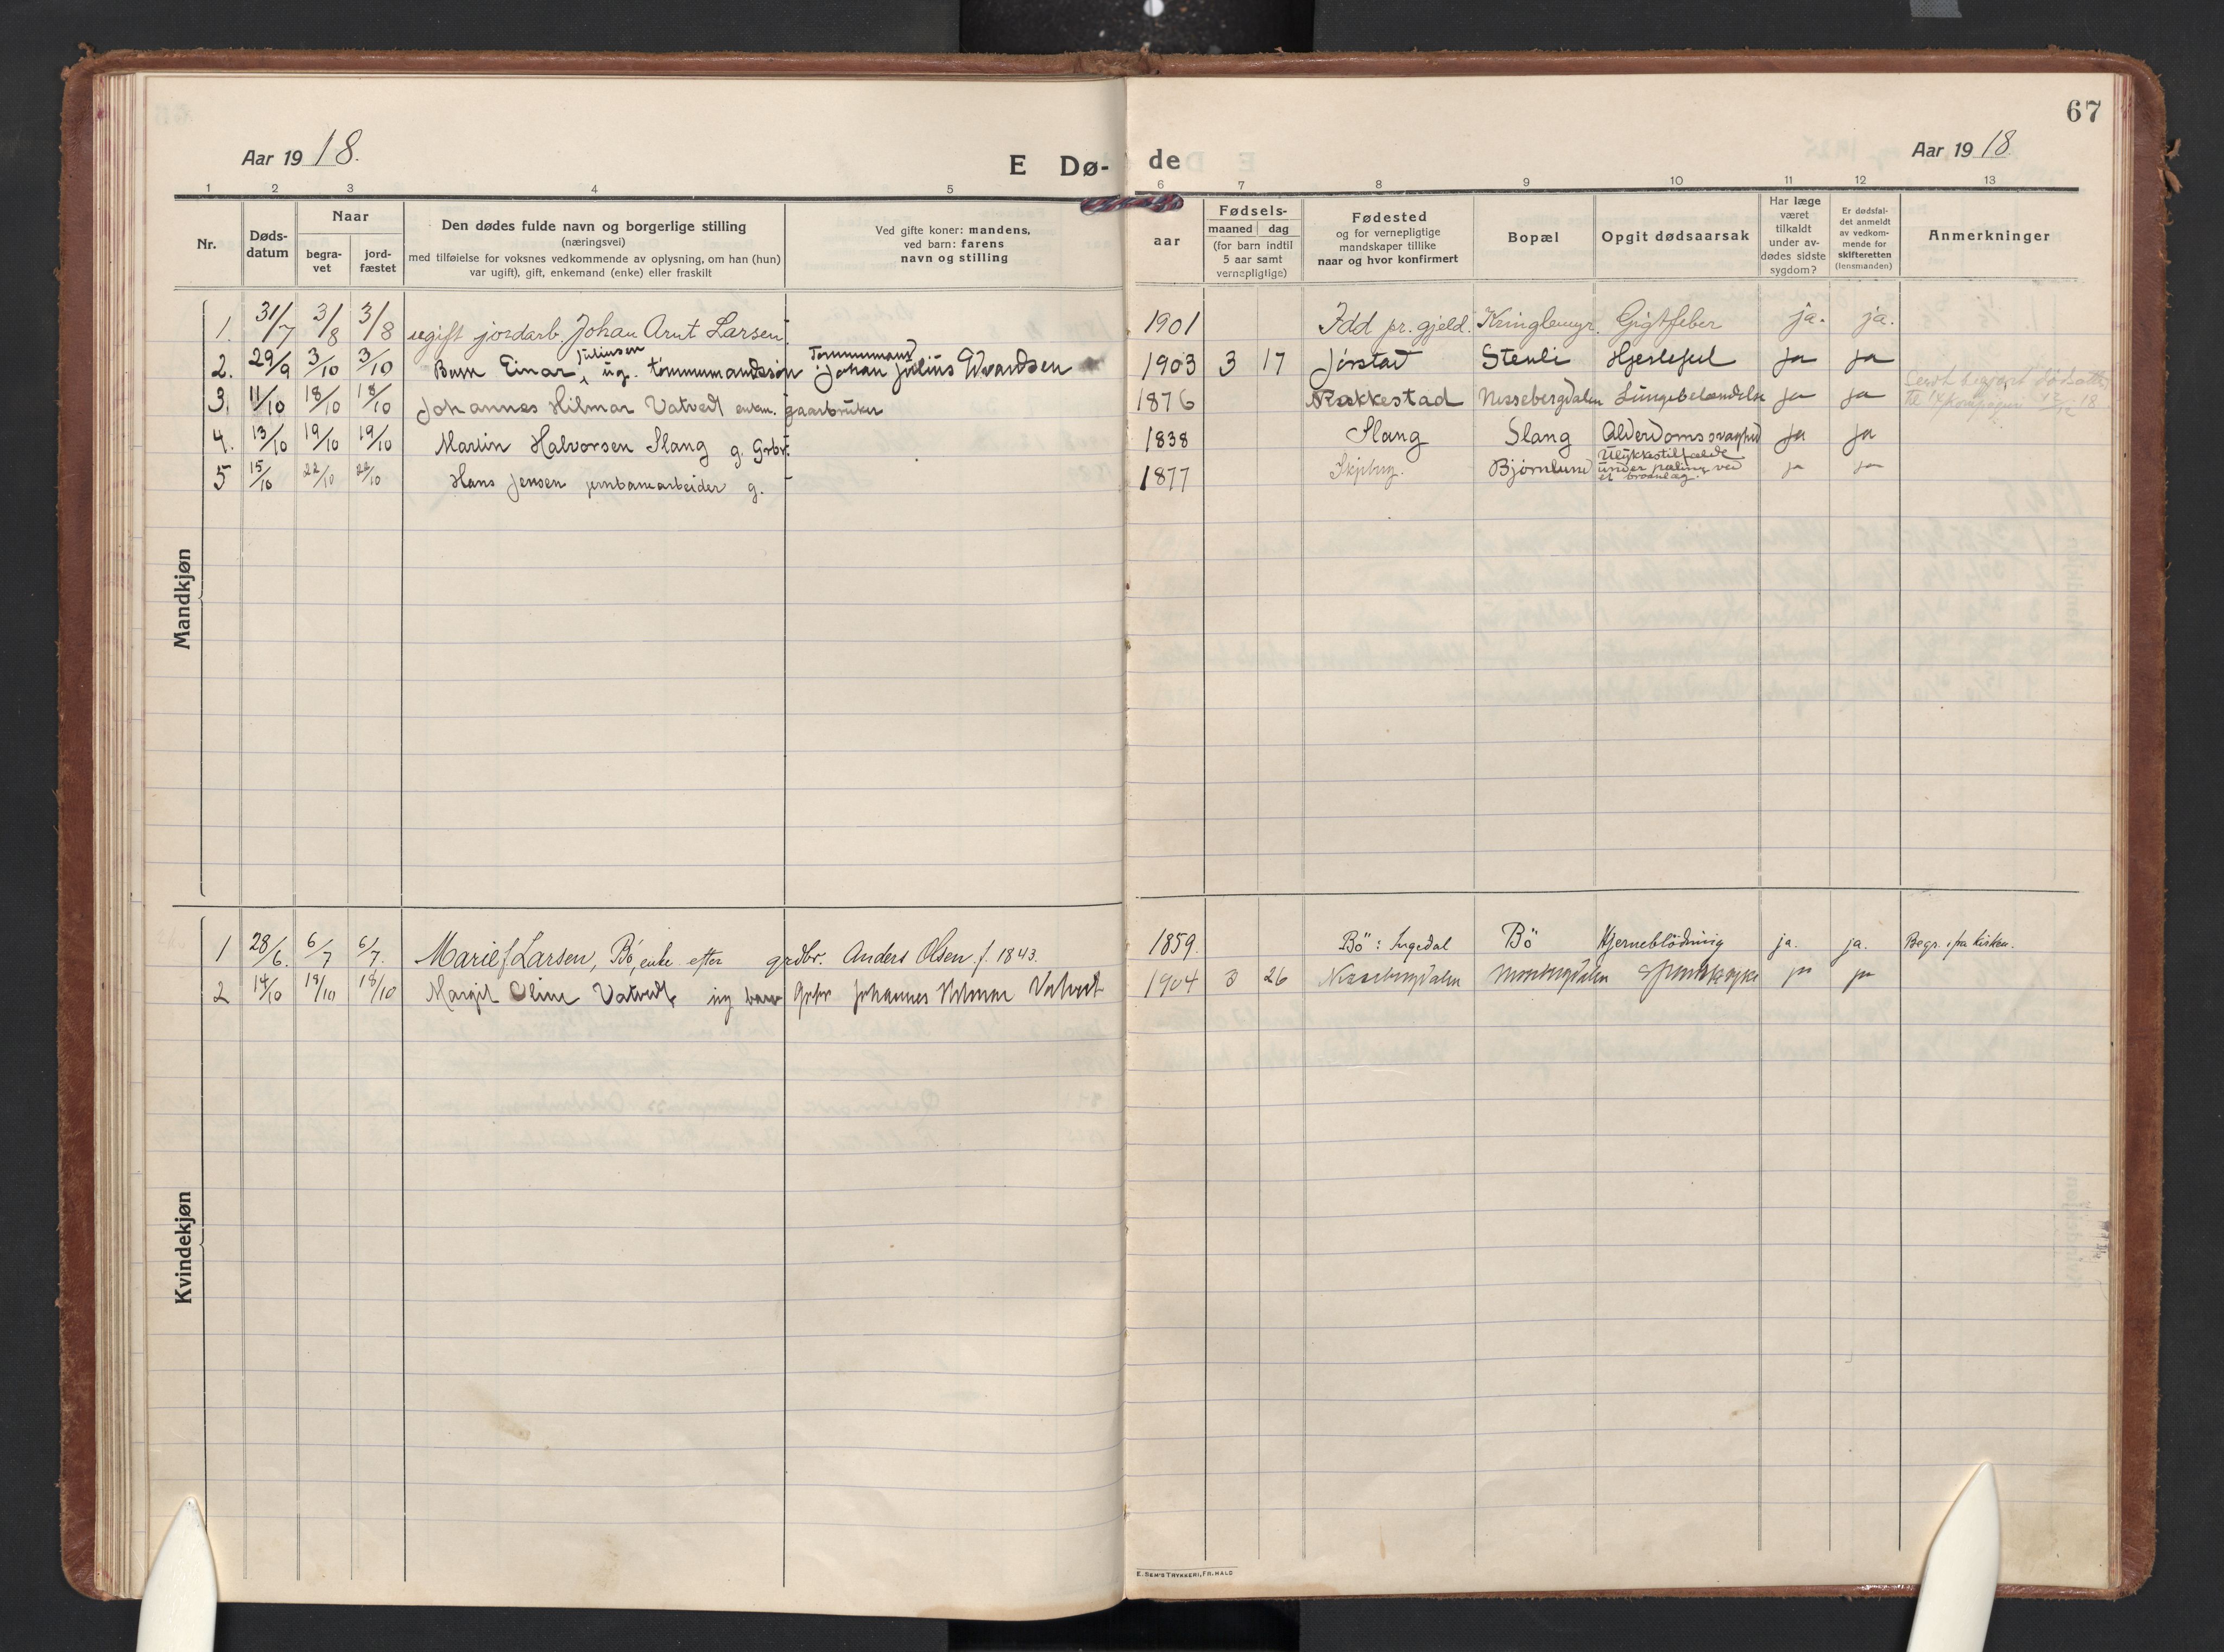 67
Aar 1918. E Dø- de Aar 1918
1 2 3 4 5 6 7 8 9 10 11 12 13
Nr.
Døds-
datum
Naar
begra-
vet
jord-
fæstet
Den dødes fulde navn og borgerlige stilling
(næringsvei)
med tilføielse for voksnes vedkommende av oplysning, om han (hun)
var ugift), gift, enkemand (enke) eller fraskilt
Ved gifte koner: mandens,
ved barn: farens
navn og stilling
Fødsels-
aar
maaned dag
(for barn indtil
5 aar samt
vernepligtige)
Fødested
og for vernepligtige
mandskaper tillike
naar og hvor konfirmert
Bopæl
Opgit dødsaarsak
Har læge
været
tilkaldt
under av-
dødes sidste
sygdom?
Er dødsfal-
det anmeldt
av vedkom-
mende for
skifteretten
(lensmanden)
Anmerkninger
Mandkjøn
1. 31/7 3/8 3/8 ugift jordarb. Johan Arnt Larsen. 1901 Idd pr. gjeld. Kringlemyr. Gigtfeber ja. ja.
Juliusen Tømmermand
2. 29/9 3/10 3/10 Barn Einar ug. tømmermandssøn Johan Julius Edvardsen 1903 3 17 Jørstad Stenli Hjertefeil ja ja
3. 11/10 18/10 18/10 Johannes Hilmar Vatvedt enkm. gaarbruker 1876 Rakkestad Nessebergdalen Lungebetændelse ja ja
4. 13/10 19/10 19/10 Martin Halvorsen Slang g. Grbr. 1838 Slang Slang Alderdomssvaghed ja ja
5 15/10 22/10 22/10 Hans Jensen jernbanearbeider g. 1877 Bjørnlund Ulykkestilfælde ja ja
under pæling ved
et broanlæg.
Kvindekjøn
1 28/6. 6/7 6/7. Marie f. Larsen, Bö, enke efter grdbr. Anders Olsen f. 1843. 1859. Bö: Ingedal Bö Hjerneblödning ja. ja. Begr. fra kirken.
2 14/10 18/10 18/10 Margit Oline Vatvedt ug barn Grbr Johannes Hilmar Vatvedt 1904 3 26 Nessebergdalen Nessebergdalen Spanskesyke ja ja
E. SEM'S TRYKKERI, FR. HALD